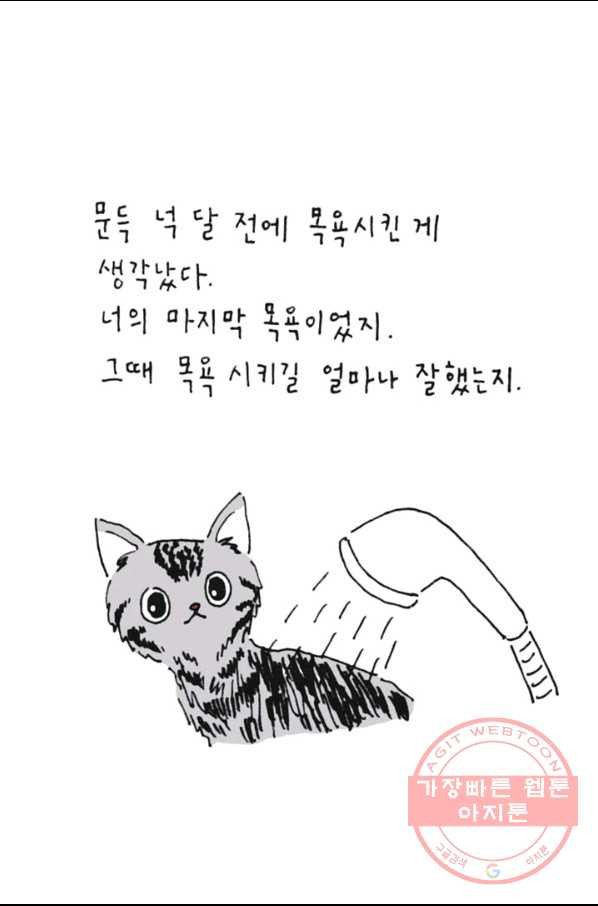 문득 넉 달 전에 목욕시킨 게
생각났다.
너의 마지막 목욕이었지.
그때 목욕 시키길 얼마나 잘했는지.
AGIT WEBTOON
가장빠른 웹툰
아지툰
구글검색 G 아지툰